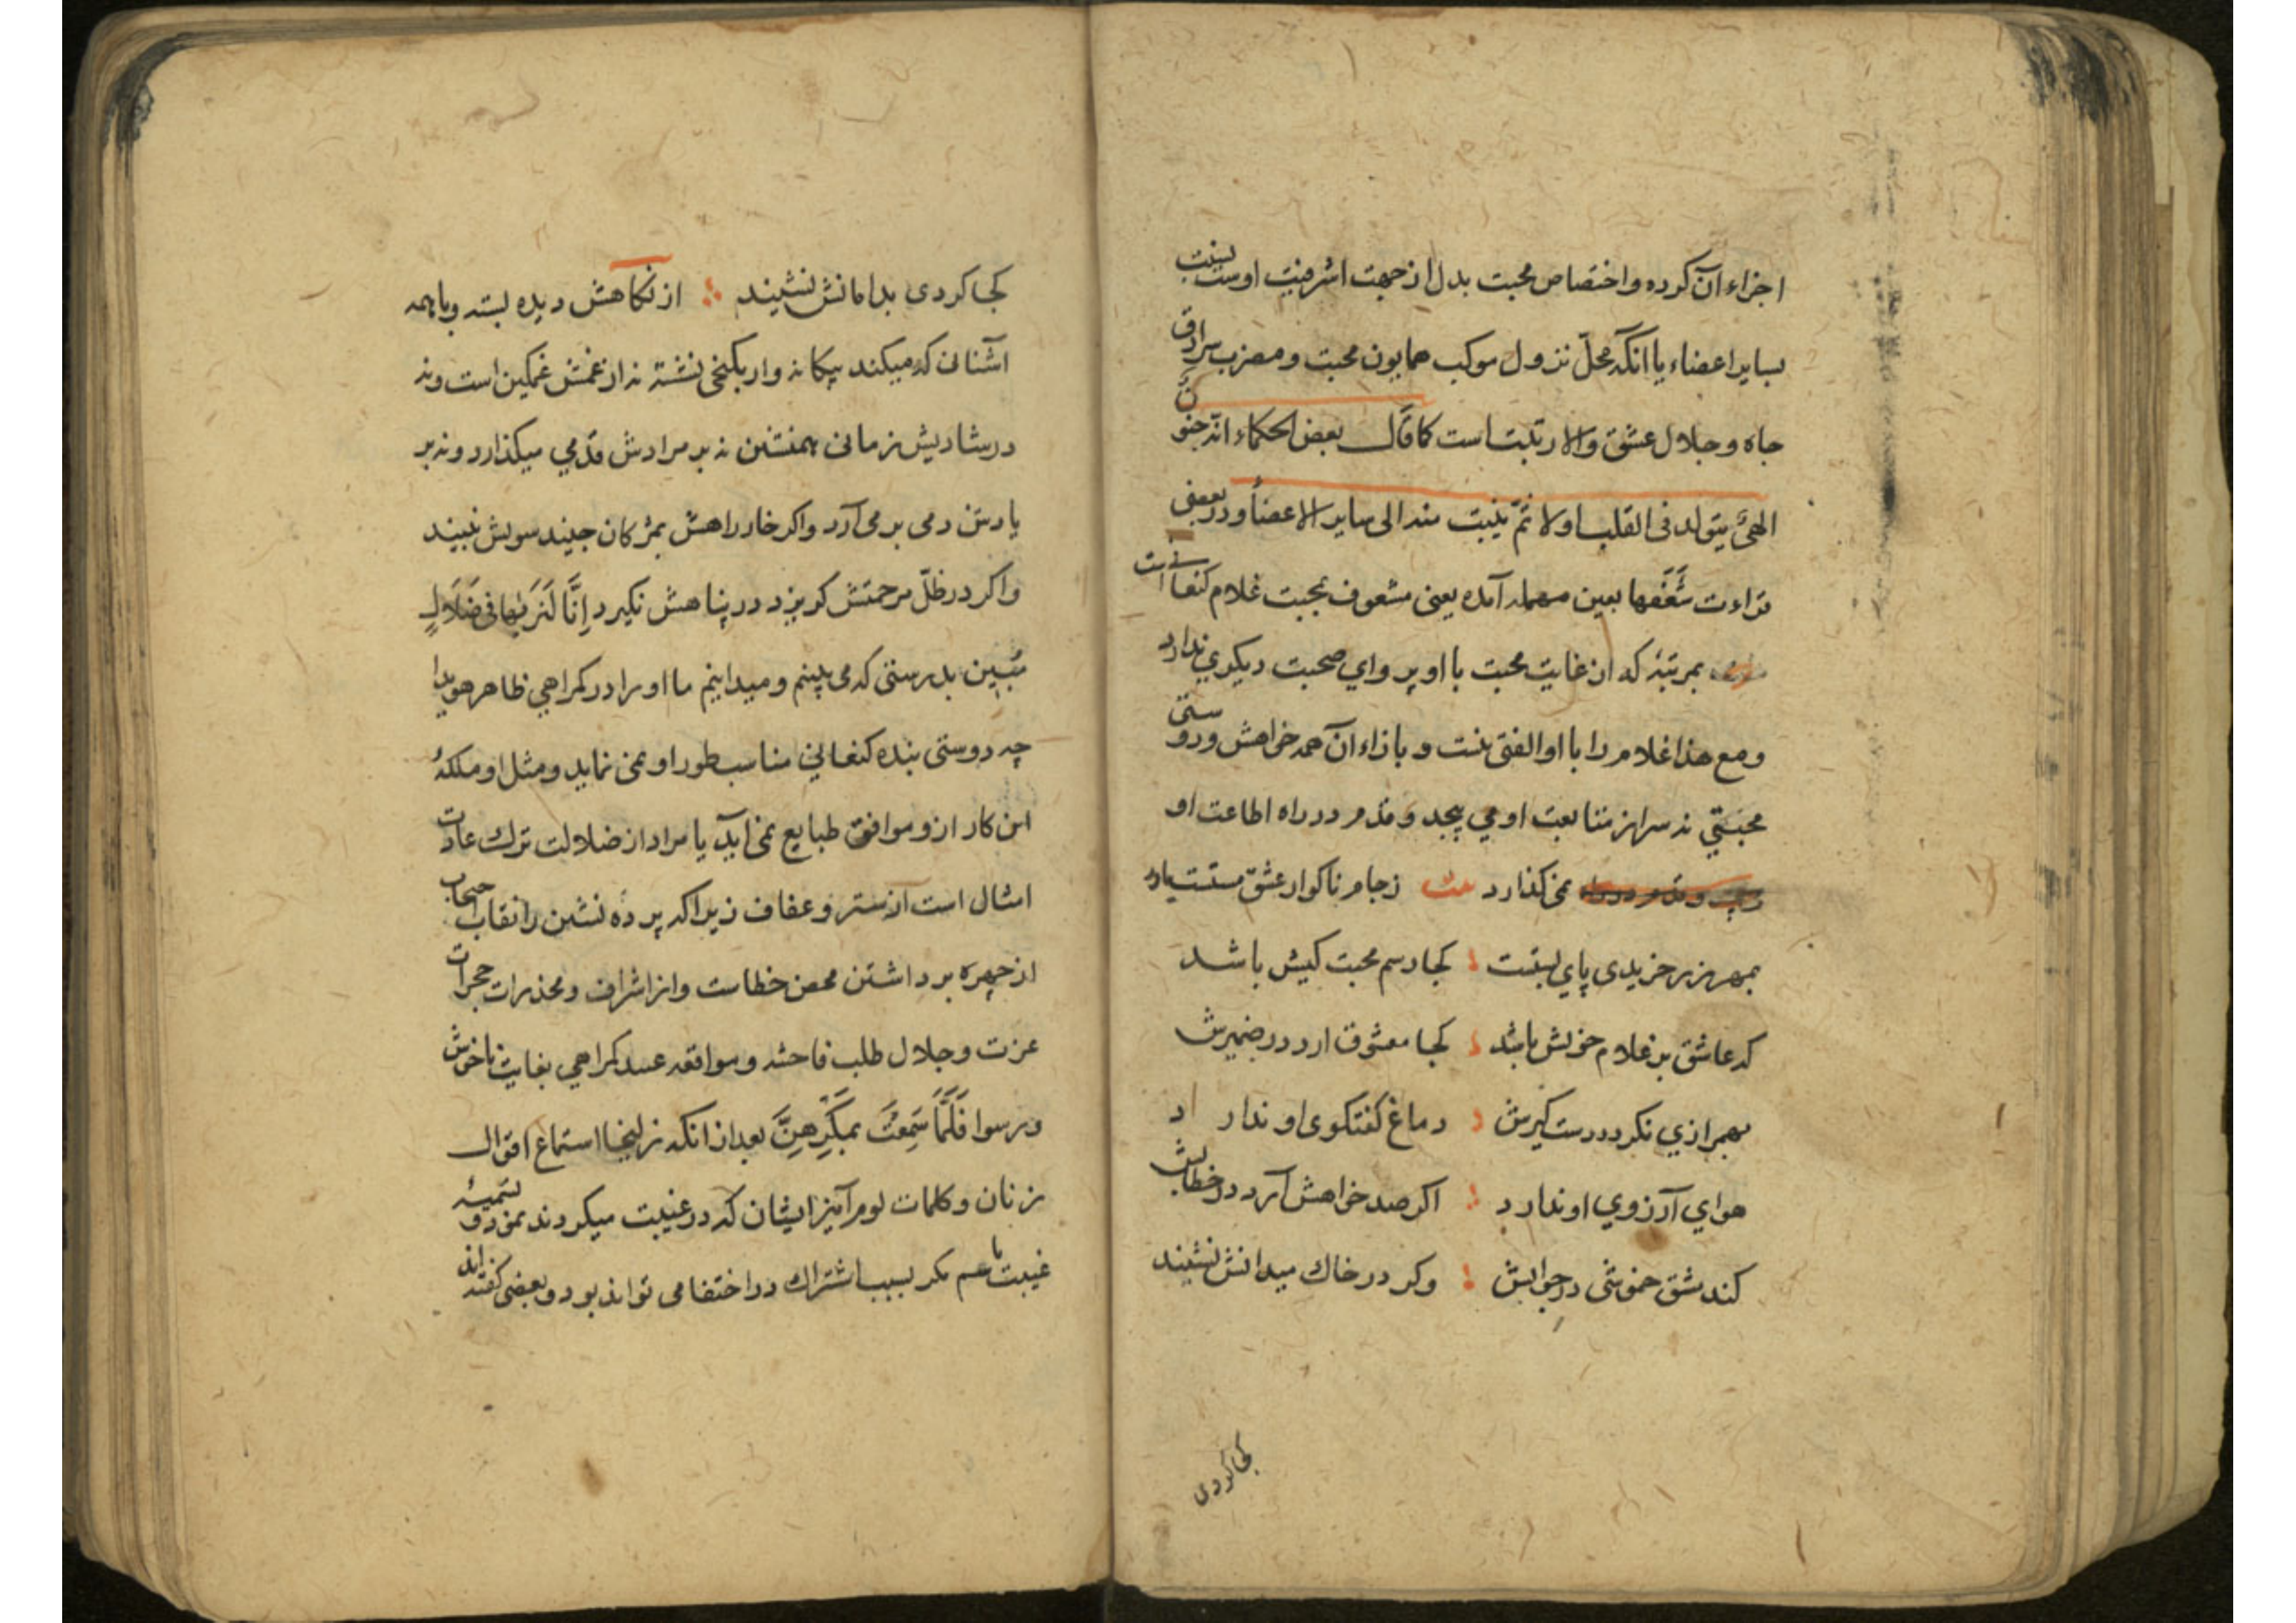 اجزاء آن کرده و اختصاص محبت بدل از جهت اشرفیت اوست بنسبت
بسایر اعضاء یا انکه محلّ نزول موکب همایون محبت و مضرب سرادق
جاه و جلال عشق والا رتبت است کما قال بعض الحکماء انّه جنونٌ
الهیٌ یتولد فی القلب اولا ثمّ یثبت منه الی سایر الاعضاء و در بعضی
قراءت شَعَفَها بعین مهمله آمده یعنی مشعوف بمحبت غلام کنعانی است
بمرتبهٔ که از غایت محبت با او پروای صحبت دیکری ندارد
ومع هذا غلام را با او الفتی نیست و بازاء آن همه خواهش و دوستی
محبتی نه سر از متابعت او می پیچد و قدم در راه اطاعت او
نمی کذارد زجام ناکوار عشق مستت
بمهر زر خریدی پای بستت کجا رسم محبت کیش باشد
که عاشق بر غلام خویش باشد کجا معشوق ارد در ضمیرش
بهمرازی نکردد دستکیرش دماغ کفتکوی او ندارد
هوای آرزوی او ندارد اکر صد خواهش آرد در خطابش
کند مشق خموشی در جوابش وکر در خاک میدانش نشیند
کجا کردی
کجا کردی بدامانش نشیند از نکاهش دیده بسته و با همه
آشنائی که میکند بیکانه وار بکنجی نشسته نه از غمش غمکین است و نه
در شادیش زمانی همنشین نه بر مرادش قدمی میکذارد و نه بر
یادش دمی بر می آرد و اکر خار راهش بمژکان چیند سویش نبیند
واکر در ظلّ مرحمتش کریزد در پناهش نکیرد إِنَّا لَنَرَیٰهَا فِی ضَلَالٍ
مُّبِین بدرستی که می بینیم و میدانیم ما او را در کمراهی ظاهر هویدا
چه دوستی بنده کنعانی مناسب طور او نمی نماید و مثل او ملکهٔ
این کار ازو موافق طبایع نمی آید یا مراد از ضلالت ترک عادت
امثال است از ستر و عفاف زیرا که پرده نشین را نقاب حجاب
از چهره برداشتن محض خطاست و از اشراف و مخدرات حجرات
عزت و جلال طلب فاحشه و مواقعه عبد کمراهی بغایت ناخوش
و رسوا فَلَمَّا سَمِعَتْ بِمَكْرِهِنَّ بعد از انکه زلیخا استماع اقوال
زنان و کلمات لوم آمیز ایشان که در غیبت میکردند نمود و تسمیهٔ
غیبت باسم مکر بسبب اشتراک در اختفا می تواند بود و بعضی کفته اند